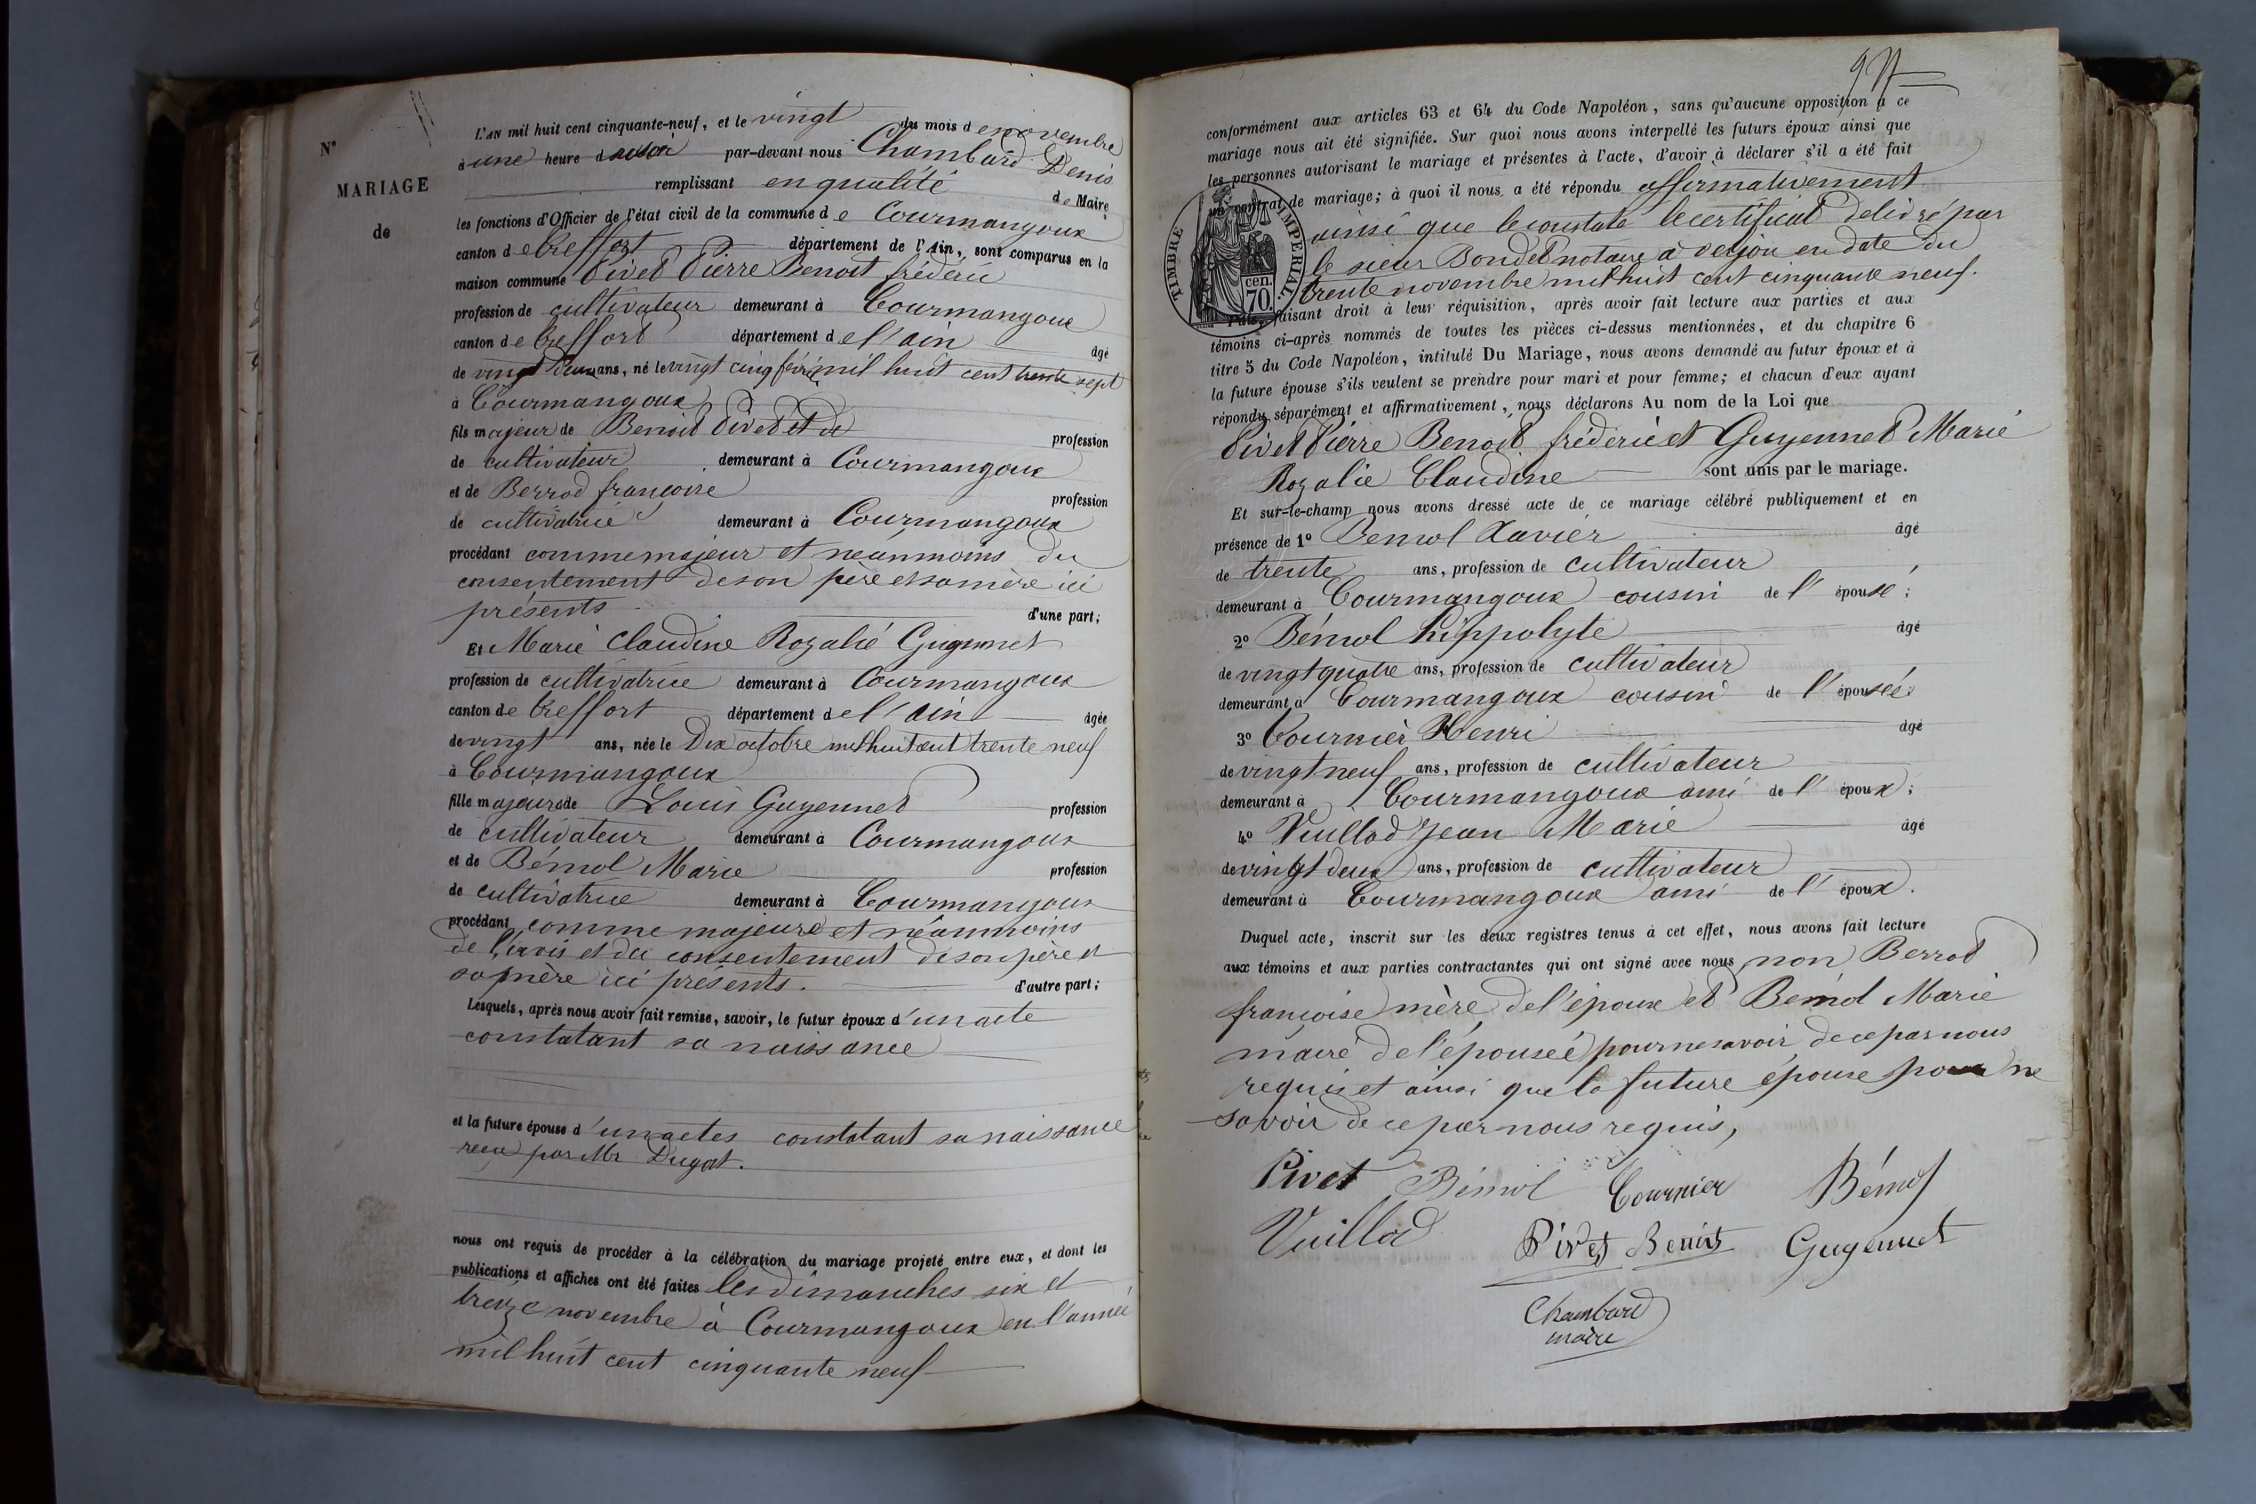 N°
MARIAGE
de
L'AN mil huit cent cinquante-neuf, et le vingt du mois de novembre
à une heure du soir par-devant nous Chambard Denis
remplissant en qualité de Maire
les fonctions d'Officier de l'état civil de la commune de Courmangoux
canton de Treffort département de l'Ain, sont comparus en la
maison commune Pivet Pierre Benoit frédéric
profession de cultivateur demeurant à Courmangoux
canton de Treffort département de l'ain âgé
de vingt deux ans, né le vingt cinq février mil huit cent trente sept
à Courmangoux
fils majeur de Benoit Pivet et de profession
de cultivateur demeurant à Courmangoux
et de Berrod françoise profession
de cultivatrice demeurant à Courmangoux
procédant comme majeur et néanmoins du
consentement de son père et sa mère ici
présents d'une part;
Et Marie Claudine Rozalie Guyennet
profession de cultivatrice demeurant à Courmangoux
canton de Treffort département de l'ain âgée
de vingt ans, née le Dix octobre mil huit cent trente neuf
à Courmangoux
fille majeure de Louis Guyennet profession
de cultivateur demeurant à Courmangoux
et de Bémol Marie profession
de cultivatrice demeurant à Courmangoux
procédant comme majeure et néanmoins
de l'avis et du consentement de son père et
sa mère ici présents. d'autre part;
Lesquels, après nous avoir fait remise, savoir, le futur époux d'un acte
constatant sa naissance
et la future épouse d'un actes constatant sa naissance
reçu par Mr Dugat.
nous ont requis de procéder à la célébration du mariage projeté entre eux, et dont les
publications et affiches ont été faites les dimanches six et
treize novembre à Courmangoux en l'année
mil huit cent cinquante neuf
conformément aux articles 63 et 64 du Code Napoléon, sans qu'aucune opposition à ce
mariage nous ait été signifiée. Sur quoi nous avons interpellé les futurs époux ainsi que
les personnes autorisant le mariage et présentes à l'acte, d'avoir à déclarer s'il a été fait
un contrat de mariage; à quoi il nous a été répondu affirmativement
TIMBRE IMPERIAL
cen. 70
ainsi que le constate le certificat délivré par
le sieur Bondet notaire à verjon en date du
trente novembre mil huit cent cinquante neuf.
Puis, faisant droit à leur réquisition, après avoir fait lecture aux parties et aux
témoins ci-après nommés de toutes les pièces ci-dessus mentionnées, et du chapitre 6
titre 5 du Code Napoléon, intitulé Du Mariage, nous avons demandé au futur époux et à
la future épouse s'ils veulent se prendre pour mari et pour femme; et chacun d'eux ayant
répondu séparément et affirmativement, nous déclarons Au nom de la Loi que
Pivet Pierre Benoit frédéric et Guyennet Marie
Rozalie Claudine sont unis par le mariage.
Et sur-le-champ nous avons dressé acte de ce mariage célébré publiquement et en
présence de 1° Bemol Xavier âgé
de trente ans, profession de cultivateur
demeurant à Courmangoux cousin de l'épousé;
2° Bémol hippolyte âgé
de vingt quatre ans, profession de cultivateur
demeurant à Courmangoux cousin de l'épousée;
3° Cournier Henri âgé
de vingt neuf ans, profession de cultivateur
demeurant à Courmangoux ami de l'époux;
4° Vuillod Jean Marie âgé
de vingt deux ans, profession de cultivateur
demeurant à Courmangoux ami de l'époux.
Duquel acte, inscrit sur les deux registres tenus à cet effet, nous avons fait lecture
aux témoins et aux parties contractantes qui ont signé avec nous, non Berrod
françoise mère de l'époux et Bémol Marie
maire de l'épouseé pour ne savoir de ce par nous
requis et ainsi que la future épouse pour ne
savoir de ce par nous requis,
Pivet Bémol Cournier Bémol
Vuillod Pivet Benoit Guyennet
Chambard
maire